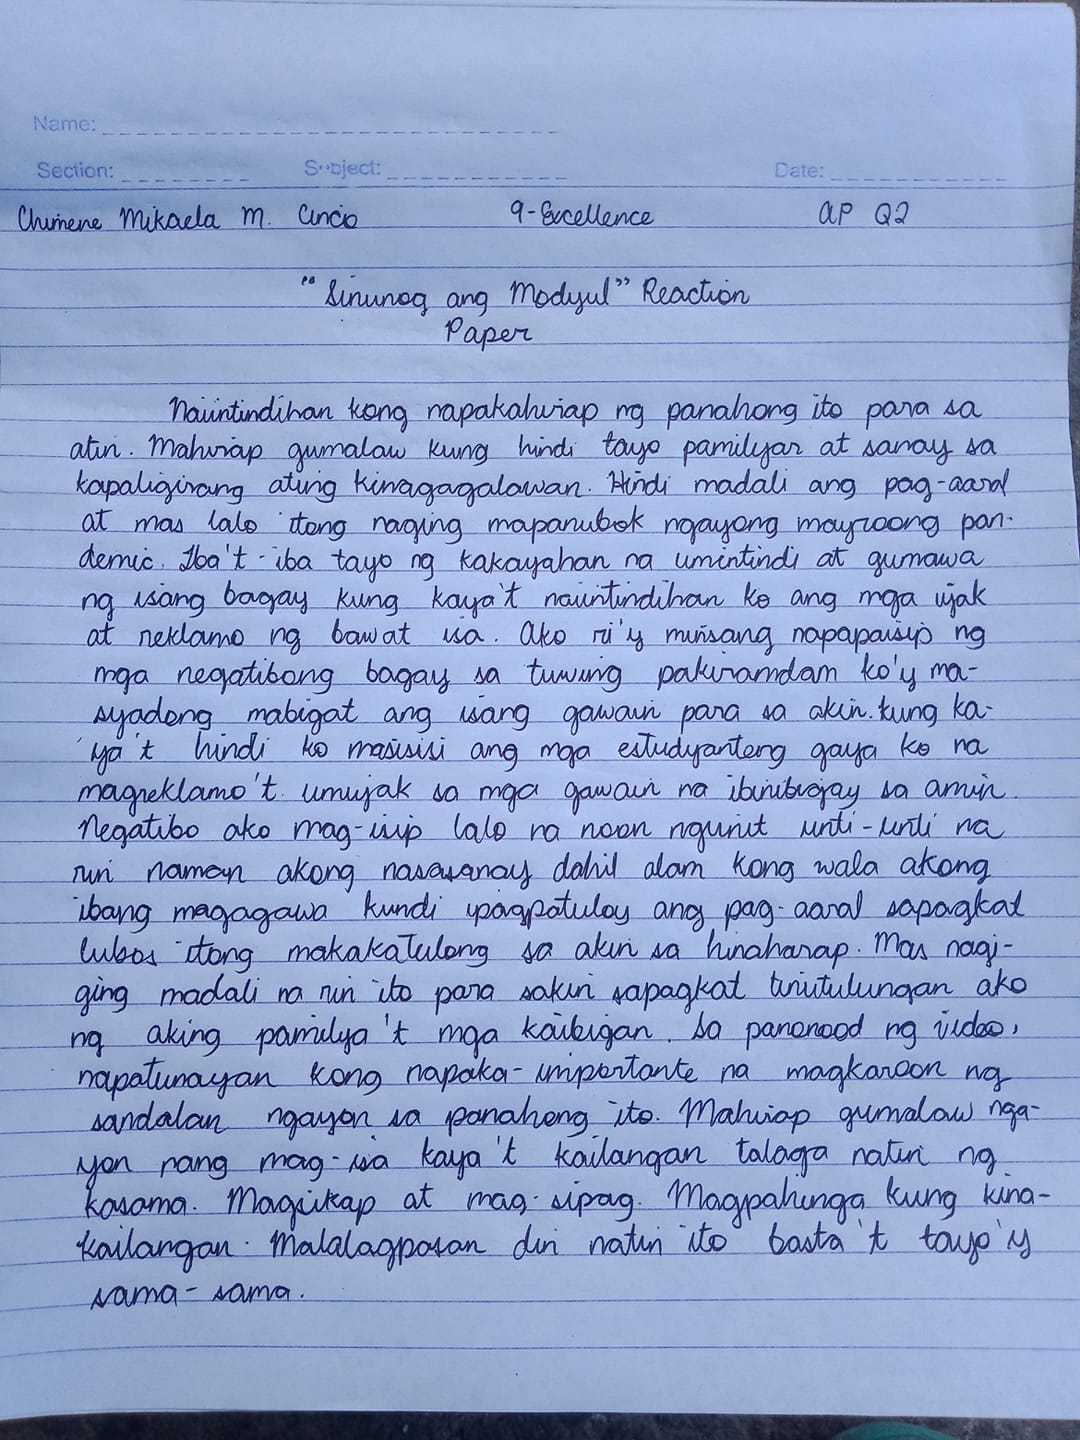 Name:
Section: Subject: Date:
Chimene Mikaela M. Cincio 9-Excellence AP Q2
"Sinunog ang Modyul" Reaction
Paper
Naiintindihan kong napakahirap ng panahong ito para sa
atin. Mahirap gumalaw kung hindi tayo pamilyar at sanay sa
kapaligirang ating kinagagalawan. Hindi madali ang pag-aaral
at mas lalo itong naging mapanubok ngayong mayroong pan-
demic. Iba't-iba tayo ng kakayahan na umintindi at gumawa
ng isang bagay kung kaya't naiintindihan ko ang mga iyak
at reklamo ng bawat isa. Ako ri'y minsang napapaisip ng
mga negatibong bagay sa tuwing pakiramdam ko'y ma-
syadong mabigat ang isang gawain para sa akin. kung ka-
ya't hindi ko masisisi ang mga estudyanteng gaya ko na
magreklamo't umiyak sa mga gawain na ibinibigay sa amin.
Negatibo ako mag-isip lalo na noon ngunit unti-unti na
rin naman akong nasasanay dahil alam kong wala akong
ibang magagawa kundi ipagpatuloy ang pag-aaral sapagkat
lubos itong makakatulong sa akin sa hinaharap. Mas nagi-
ging madali na rin ito para sakin sapagkat tinutulungan ako
ng aking pamilya't mga kaibigan. Sa panonood ng video,
napatunayan kong napaka-importante na magkaroon ng
sandalan ngayon sa panahong ito. Mahirap gumalaw nga-
yon nang mag-isa kaya't kailangan talaga natin ng
kasama. Magsikap at mag-sipag. Magpahinga kung kina-
kailangan. Malalagpasan din natin ito basta't tayo'y
sama-sama.